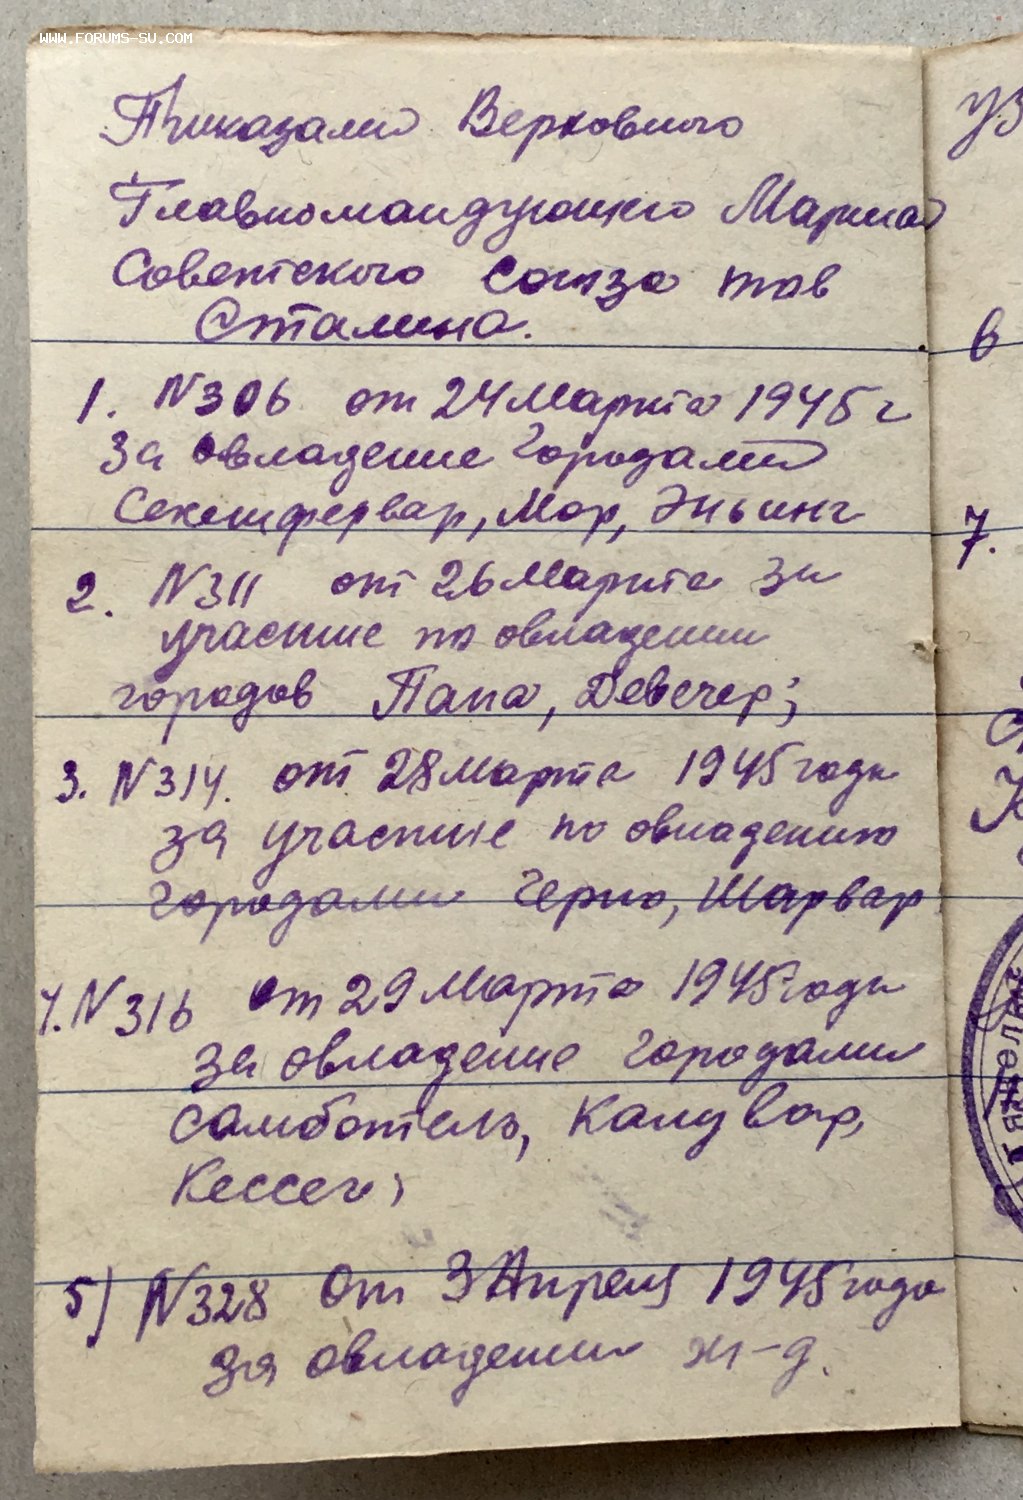 WWW.FORUMS-SU.COM
Приказами Верховного
Главкомандующего Маршал
Советского Союза тов
Сталина.
1. N306 от 24 Марта 1945 г
За овладение городами
Секешфервар, Мор, Эньинг
2. N311 от 26 Марта за
участие по овладении
городов Папа, Девечер;
3. N314. от 28 Марта 1945 года
за участие по овладению
городами Черно, Шарвар
4. N316 от 29 Марта 1945 года
за овладение городами
Самботель, Капувар,
Кессег;
5) N328 От 3 Апреля 1945 года
за овладении ж-д.
УЗ
6
7.